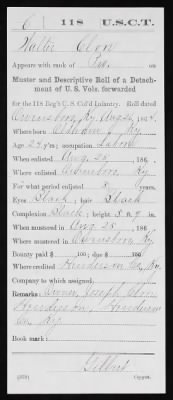 C | 118 | U.S.C.T.
Appears with rank of Pvt. on
Muster and Descriptive Roll of a Detach-
ment of U. S. Vols. forwarded
for the 118 Reg't U. S. Col'd Infantry. Roll dated
Owensboro, Ky. Aug 1864.
Where born Ky.
Age 24 y'rs; occupation Labor
When enlisted Aug. 25, 186
Where enlisted Owensboro, Ky.
For what period enlisted 3 years.
Eyes Black; hair Black
Complexion Black; height ft. in.
When mustered in Aug. 25, 186
Where mustered in Owensboro, Ky.
Bounty paid $ 100; due $ 100
Where credited Henderson Co., Ky.
Company to which assigned
Remarks: Owner, Joseph
Henderson, Henderson
Co. Ky.
Book mark:
Copyist.